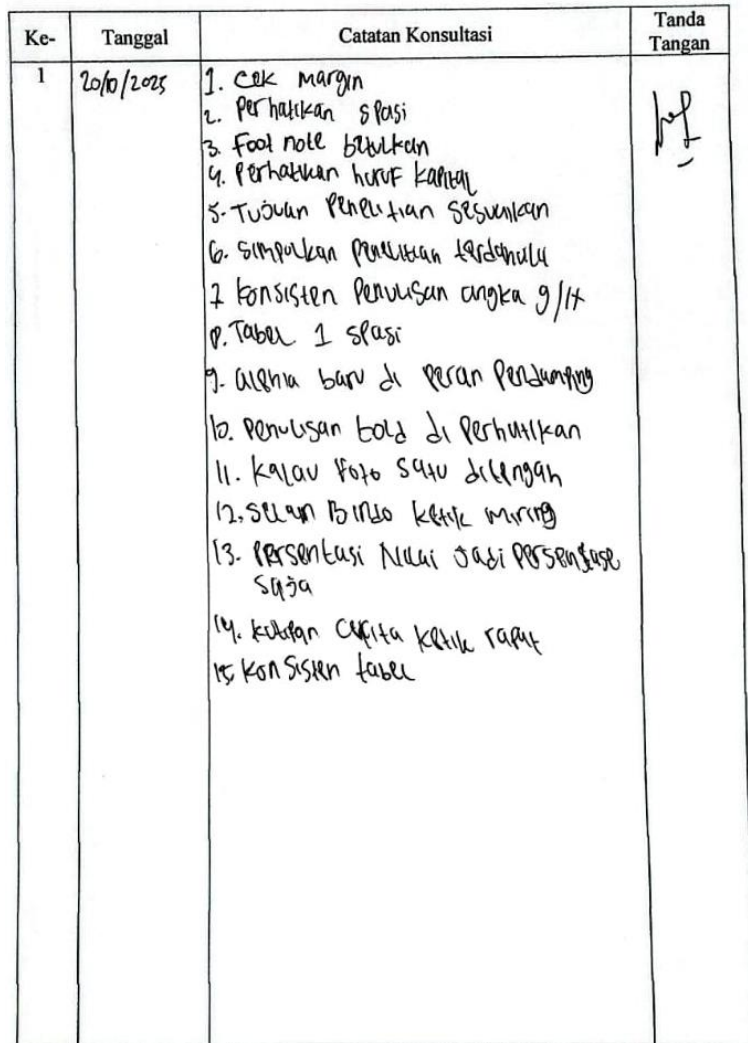 Ke- Tanggal Catatan Konsultasi Tanda Tangan
1 20/10/2025 1. Cek margin
2. Perhatikan spasi
3. Foot note betulkan
4. Perhatikan huruf kapital
5. Tujuan Penelitian sesuaikan
6. Simpulkan penelitian terdahulu
7 Konsisten Penulisan angka 9/
8. Tabel 1 spasi
9. alenia baru di peran Pendamping
10. Penulisan bold di Perhatikan
11. Kalau Foto satu ditengah
12. selain B indo ketik miring
13. Persentasi Nilai Jadi Persentase
saja
14. kutipan cerita ketik rapat
15. Konsisten tabel